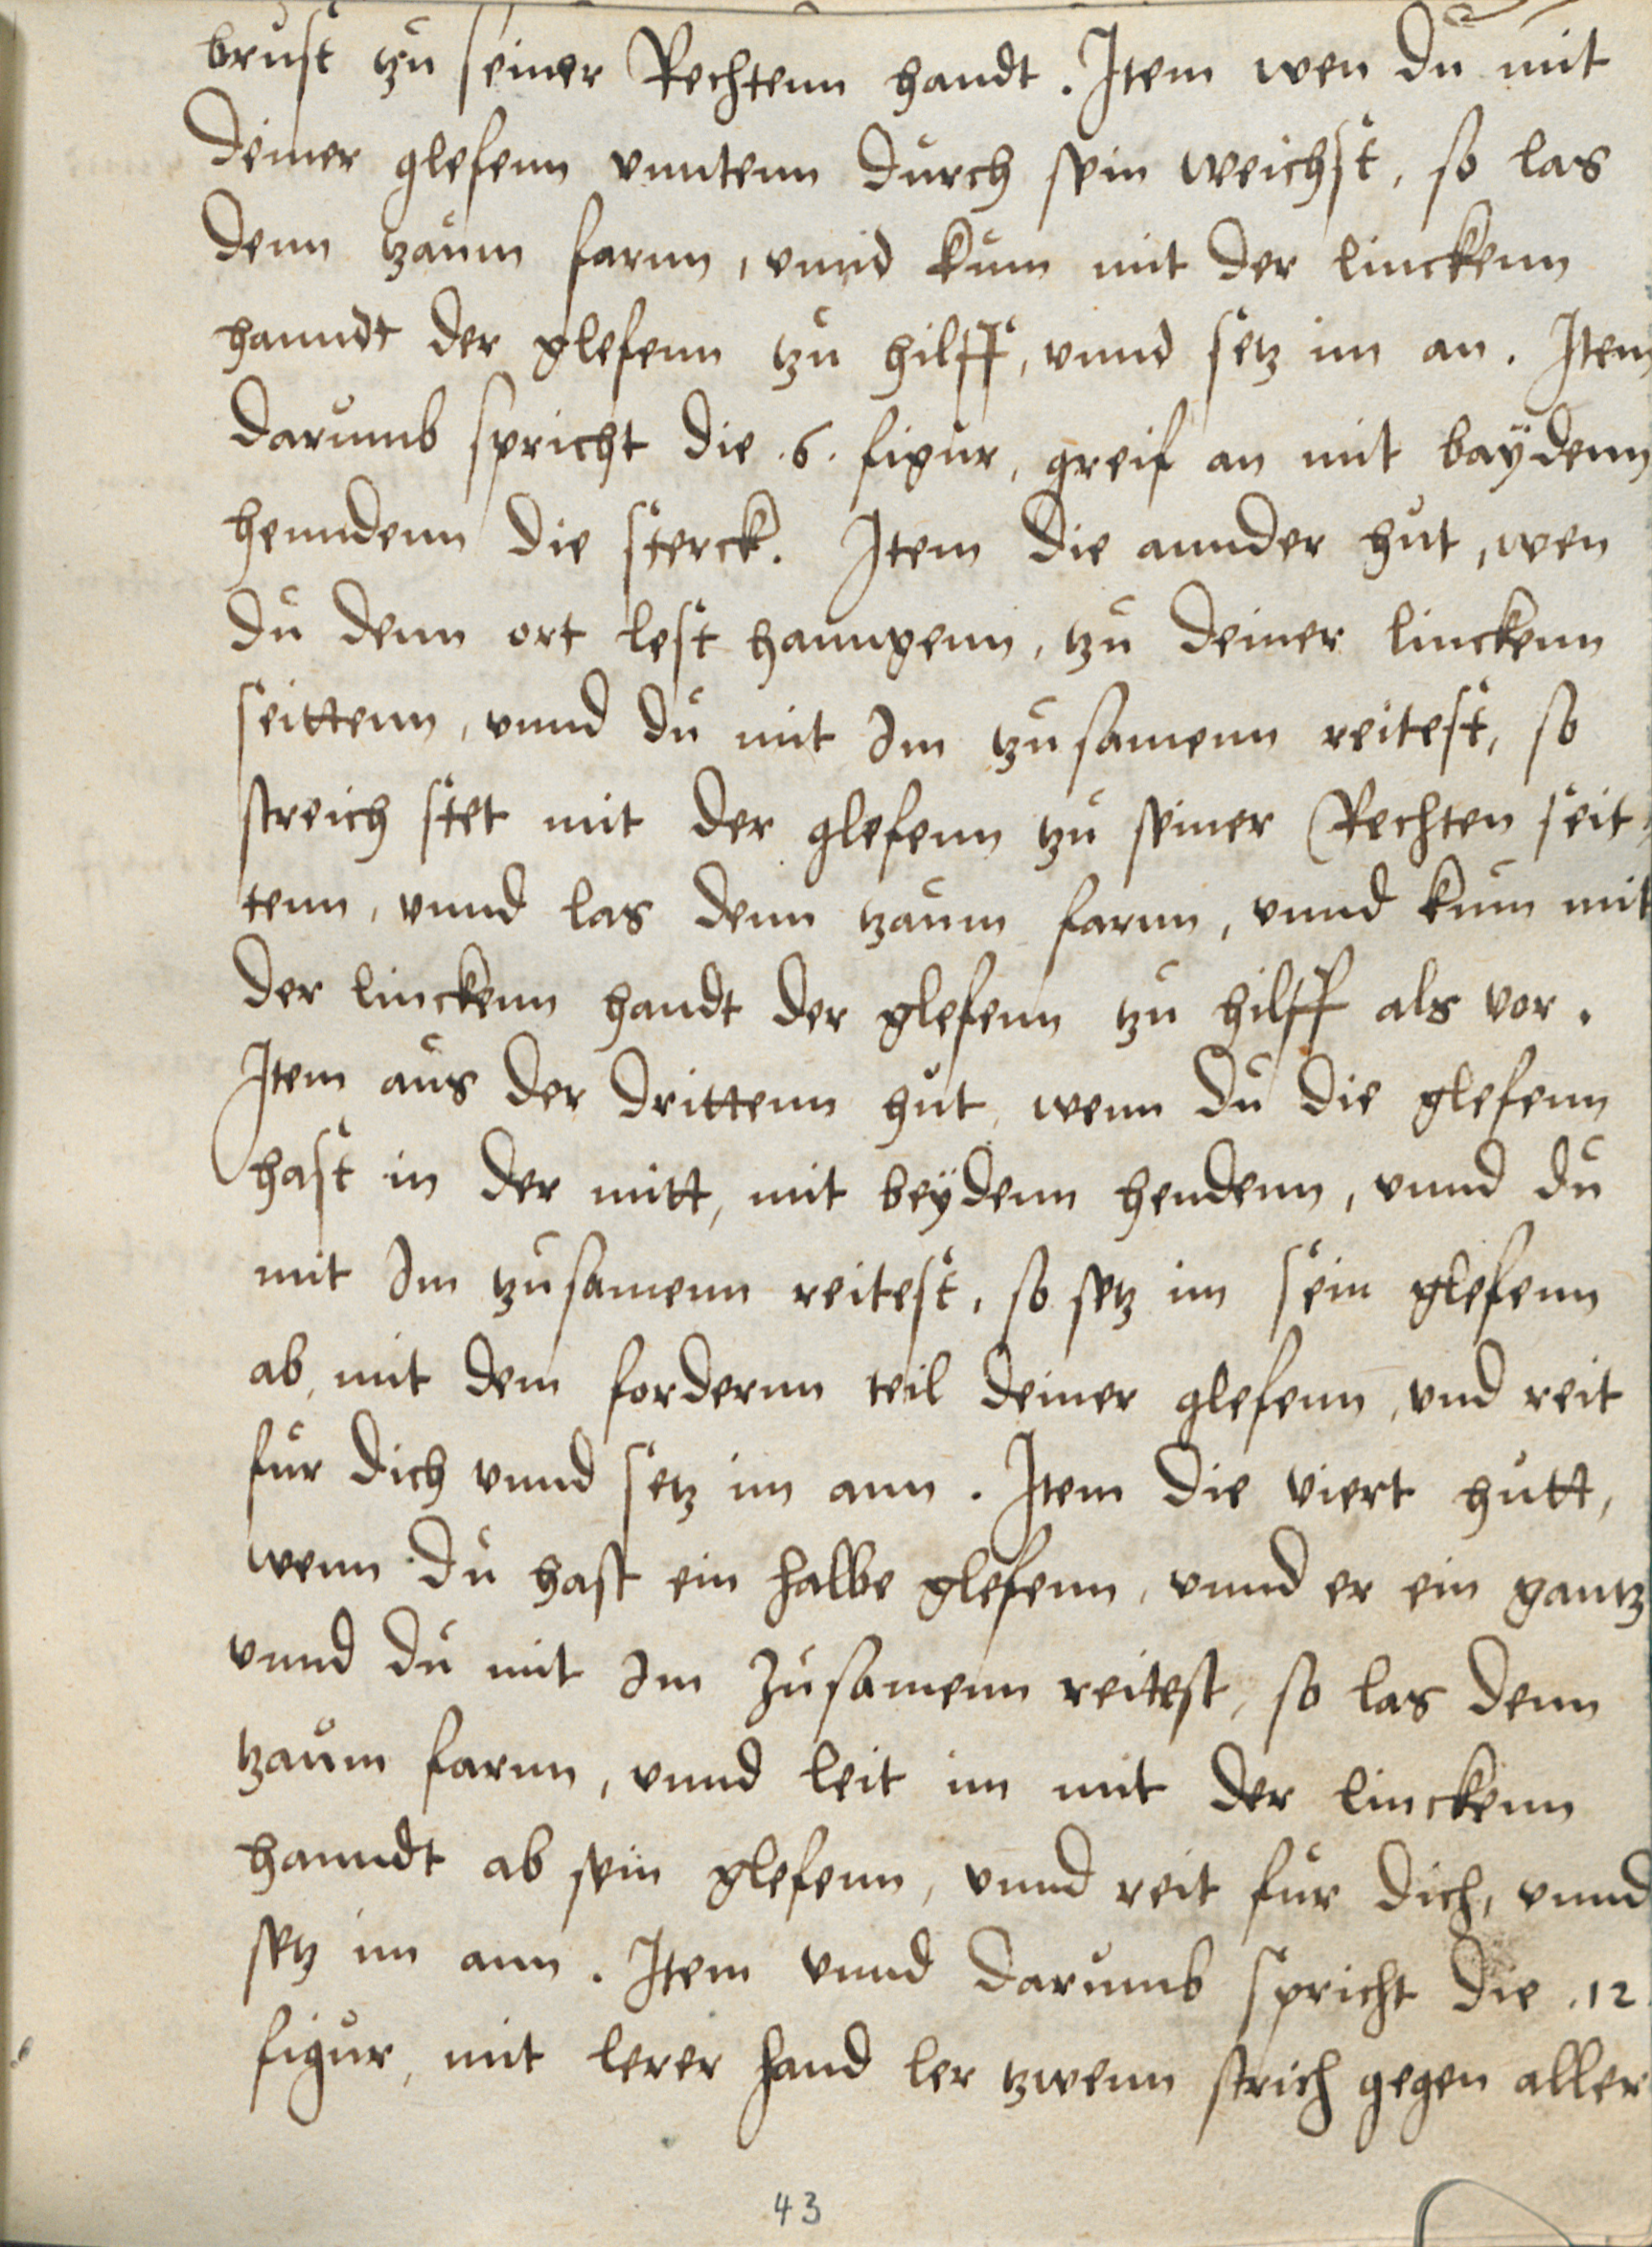 brust tzu seiner Rechtenn handt. Item wen du mit
deiner glefenn vnntenn durch sein weichst, so las
denn tzaum farnn, vnnd kum mit der linckenn
hanndt der glefenn tzu hilff, vnnd setz im an. Item
darumb spricht die .6. figur, greif an mit baÿdenn
henndenn die sterck. Item die annder hut, wen
du denn ort lest hanngenn, tzu deiner linckenn
seittenn, vnnd du mit Im tzusamenn reitest, so
streich stet mit der glefenn tzu seiner Rechten seit
tenn, vnnd las denn tzaum farnn, vnnd kum mit
der linckenn handt der glefenn tzu hilff als vor.
Item aus der drittenn hut, wenn du die glefenn
hast in der mitt, mit beÿdenn hendenn, vnnd du
mit Im tzusamenn reitest, so setz im sein glefenn
ab, mit dem fordernn teil deiner glefenn, vnd reit
fur dich vnnd setz im ann. Item die viert hutt,
wenn du hast ein halbe glefenn, vnnd er ein gantz
vnnd du mit Im zusamenn reitest, so las denn
tzaum farnn, vnnd leit im mit der linckenn
hanndt ab sein glefenn, vnnd reit fur dich, vnnd
setz im ann. Item vnnd darumb spricht die .12
figur, mit lerer hand ler tzwenn strich gegen aller
43